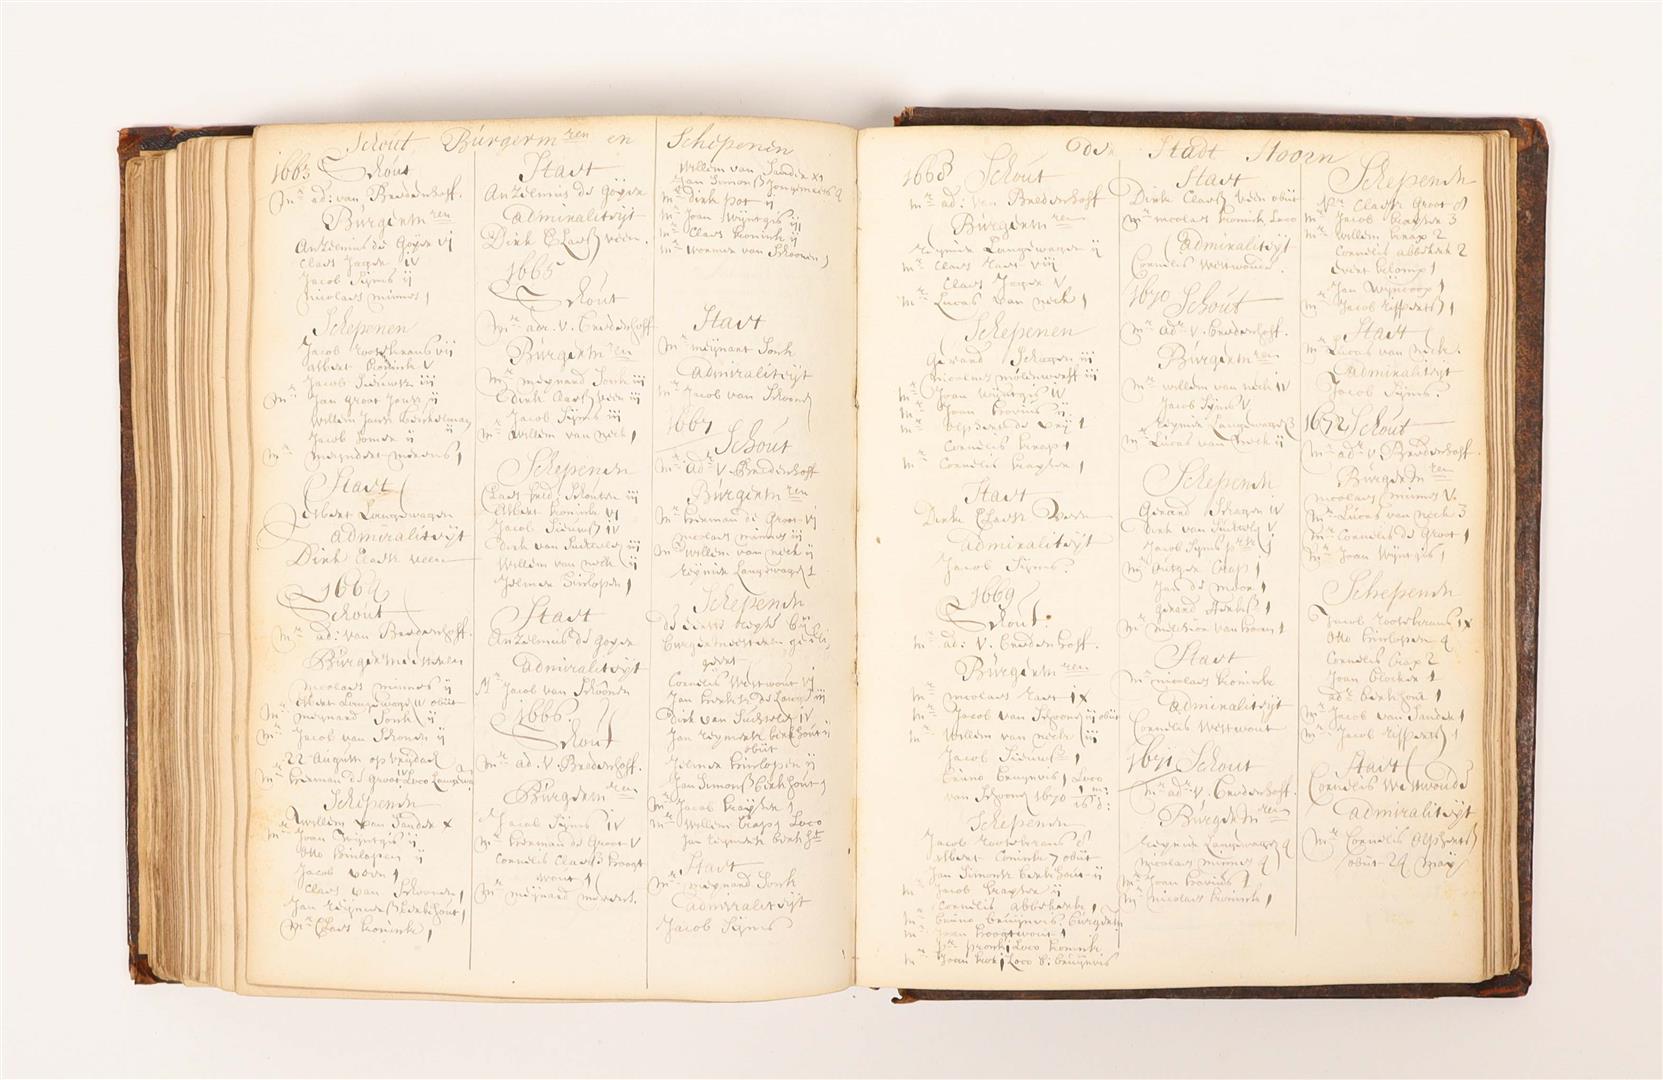 Schout Burgerm ren en Schepenen
1663 Schout
Mr ad: van Bredenhoff.
Burgerm ren
Anzelmus de Goyer vj
Claes Jager iv
Jacob Sijms ij
Nicolaes Minnes j
Schepenen
Jacob Rootekrans vij
Albert Konink v
Jacob Sieuwertsz iij
Mr Jan Groot Jansz ij
Willem Jansz
Jacob
Mr Meyndert Merens j
Staet
Albert Langewagen
Admiraliteijt
Dirk Claesz Veen
1664
Schout
Mr ad: van Bredenhoff.
Burgermeesteren
Nicolaes Minnes ij
Albert Langewagen obiit
Mr Meynard Sonk ij
Mr Jacob van Schoonen ij
22 August op vrijdach
Mr Herman de Groot iv Loco Langewa.
Schepenen
Willem van Sanden x
Mr Joan Wijntgis ij
Otto Hinlopen ij
Jacob
Claes van Schoonen j
Jan Reijnersz Berkhout j
Mr Claes Konink j
Staet
Anzelmus de Goyer
Admiraliteijt
Dirk Claesz Veen.
1665
Schout
Mr adr. v. Bredenhoff
Burgerm ren
Mr Meynard Sonk iij
Dirk Claesz Veen iij
Jacob Sijms iij
Mr Willem van Neck j
Schepenen
Claes Schouten iij
Albert Konink vj
Jacob Sieuwertsz iv
Dirk van Suchtelen iij
Willem van Neck ij
Jelmer Hinlopen j
Staet
Anzelmus de Goyer
Admiraliteijt
Mr Jacob van Schoonen
1666.
Schout
Mr ad. v. Bredenhoff.
Burgerm ren
Jacob Sijms iv
Mr Herman de Groot v
Cornelis Claesz Hoogt
wout j
Mr Meijnard Merens.
Willem van Sanden xj
Jan Simonsz Jongemaets 2
Mr Dirk Pot ij
Mr Joan Wijntgis iij
Mr Claes Konink ij
Mr Wormer van Schoonen j
Staet
Mr Meijnart Sonk
Admiraliteijt
Mr Jacob van Schoonen
1667
Schout
Mr adr v. Bredenhoff
Burgerm ren
Mr Herman de Groot vj
Nicolaes Minnes iij
Mr Willem van Neck ij
Reijnier Langewagen 1
Schepenen
de eerste reijse bij
Burgermeesteren
Cornelis Westwout vj
Jan de Lange iij
Dirk van Suchtelen iv
Jan Reijnersz Berkhout ij
obiit
Jelmer Hinlopen ij
Jan Simonsz Berkhout j
Mr Jacob Kaijser j
Mr Willem Crap j Loco
Jan Reijnersz Berkht
Staet
Mr Meijnard Sonk
Admiraliteijt
Jacob Sijms
der Stadt Hoorn
1668 Schout
Mr ad: van Bredenhoff
Burgerm ren
Reijnier Langewagen ij
Mr Claes Raet viij
Claes Jager v
Mr Lucas van Neck j
Schepenen
Gerard Schagen iij
Nicolaes Molenwerff iij
Mr Joan Wijntgis iv
Mr Joan Hovius ij
Mr
Cornelis Crap j
Mr Cornelis Kaijser j
Staet
Dirk Claesz Veen
Admiraliteijt
Jacob Sijms.
1669
Schout.
Mr ad: v. Bredenhoff.
Burgerm ren
Mr Nicolaes Raet ix
Mr Jacob van Schoonen iij obiit
Mr Willem van Neck iij
Jacob Sieuwertsz j
Bruno Bruijnvis j Loco
van Schoonen 1670
Schepenen
Jacob Rootekrans 8
Albert Conink 7 obiit
Jan Simonsz Berkhout ij
Mr Jacob Kaijser ij
Cornelis Abbekerk j
Mr Bruno Bruijnvis. Burgerm
Mr Joan Hoogtwout j
Pr Pronk j Loco Konink
Mr Joan Hok j Loco B: Bruijnvis
Staet
Dirk Claesz Veen obiit
Mr Nicolaes Konink Loco
Admiraliteijt
Cornelis Westwoude.
1670 Schout
Mr adr v. Bredenhoff.
Burgerm ren
Mr Willem van Neck iv
Jacob Sijms v
Reijnier Langewagen 3
Mr Lucas van Neck ij
Schepenen
Gerard Schagen iv
Dirk van Suchtelen v
Jacob Sijms j
Mr Rutger Crap j
Jan de Moor j
Gerard j
Mr Melchior van Hoorn j
Staet
Mr Nicolaes Konink
Admiraliteijt
Cornelis Westwout
1671 Schout
Mr adr v. Bredenhoff.
Burgerm ren
Reijnier Langewagen 4
Nicolaes Minnes 4
Mr Joan Hovius 1
Mr Nicolaes Konink j
Schepenen
Pr Claesz Groot 8
Mr Jacob Kaijser 3
Mr Willem Crap 2
Cornelis Abbekerk 2
Evert j
Jan Wijncoop j
Mr Jacob j
Staet
Mr Lucas van Neck.
Admiraliteijt
Jacob Sijms.
1672 Schout
Mr adr v Bredenhoff.
Burgerm ren
Nicolaes Minnes v.
Mr Lucas van Neck 3
Mr Cornelis de Groot j
Mr Joan Wijntgis j
Schepenen
Jacob Rootekrans ix
Otto Hinlopen 4
Cornelis Crap 2
Joan Blocker 1
adr Berkhout 1
Mr Jacob van Sanden j
Mr Jacob j
Staet
Cornelis Westwoude
Admiraliteijt
Mr Cornelis
obiit 29 Maij